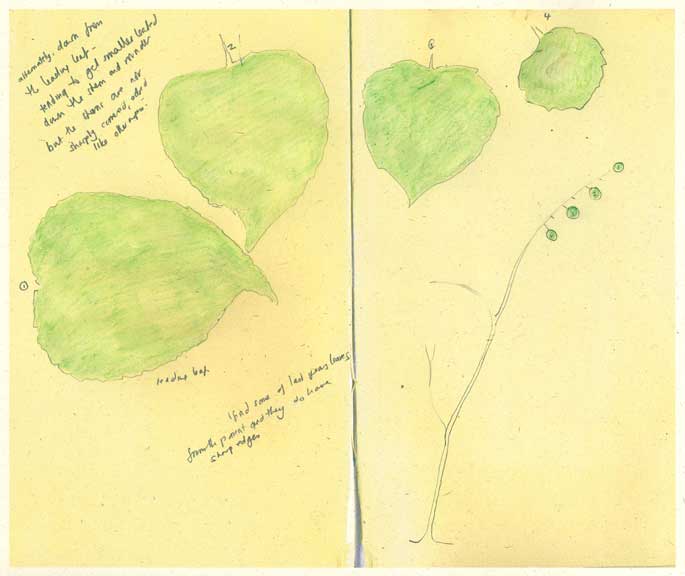 alternately, down from
the leading leaf -
tending to get smaller leafed
down the stem and rounder
but the stems are not
sharply
like other
2
6
4
1
leading leaf
I find some of last years leaves
from the parent and they do have
sharp edges